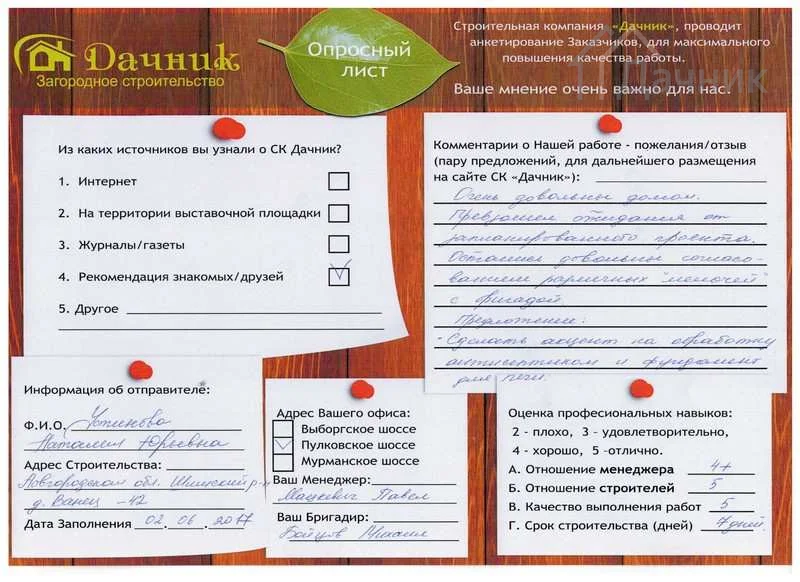 Дачник
Загородное строительство
Опросный
лист
Строительная компания «Дачник», проводит
анкетирование Заказчиков, для максимального
повышения качества работы.
Ваше мнение очень важно для нас.
Дачник
Из каких источников вы узнали о СК Дачник?
1. Интернет
2. На территории выставочной площадки
3. Журналы/газеты
4. Рекомендация знакомых/друзей
5. Другое
Комментарии о Нашей работе - пожелания/отзыв
(пару предложений, для дальнейшего размещения
на сайте СК «Дачник»):
Очень довольны домом.
Превзошел ожидания от
запланированного проекта.
Остались довольны согласо-
ванием различных "мелочей"
с бригадой.
Предложение:
- Сделать акцент на обработку
антисептиком и фундамент
для печи.
Информация об отправителе:
Ф.И.О. Устинова
Наталия Юрьевна
Адрес Строительства:
Новгородская обл. Шимский р-н
д. Ванец -42
Дата Заполнения 02.06.2017
Адрес Вашего офиса:
Выборгское шоссе
Пулковское шоссе
Мурманское шоссе
Ваш Менеджер:
Мацкевич Павел
Ваш Бригадир:
Бойцов Михаил
Оценка професиональных навыков:
2 - плохо, 3 - удовлетворительно,
4 - хорошо, 5 -отлично.
А. Отношение менеджера 4+
Б. Отношение строителей 5
В. Качество выполнения работ 5
Г. Срок строительства (дней) 7 дней.